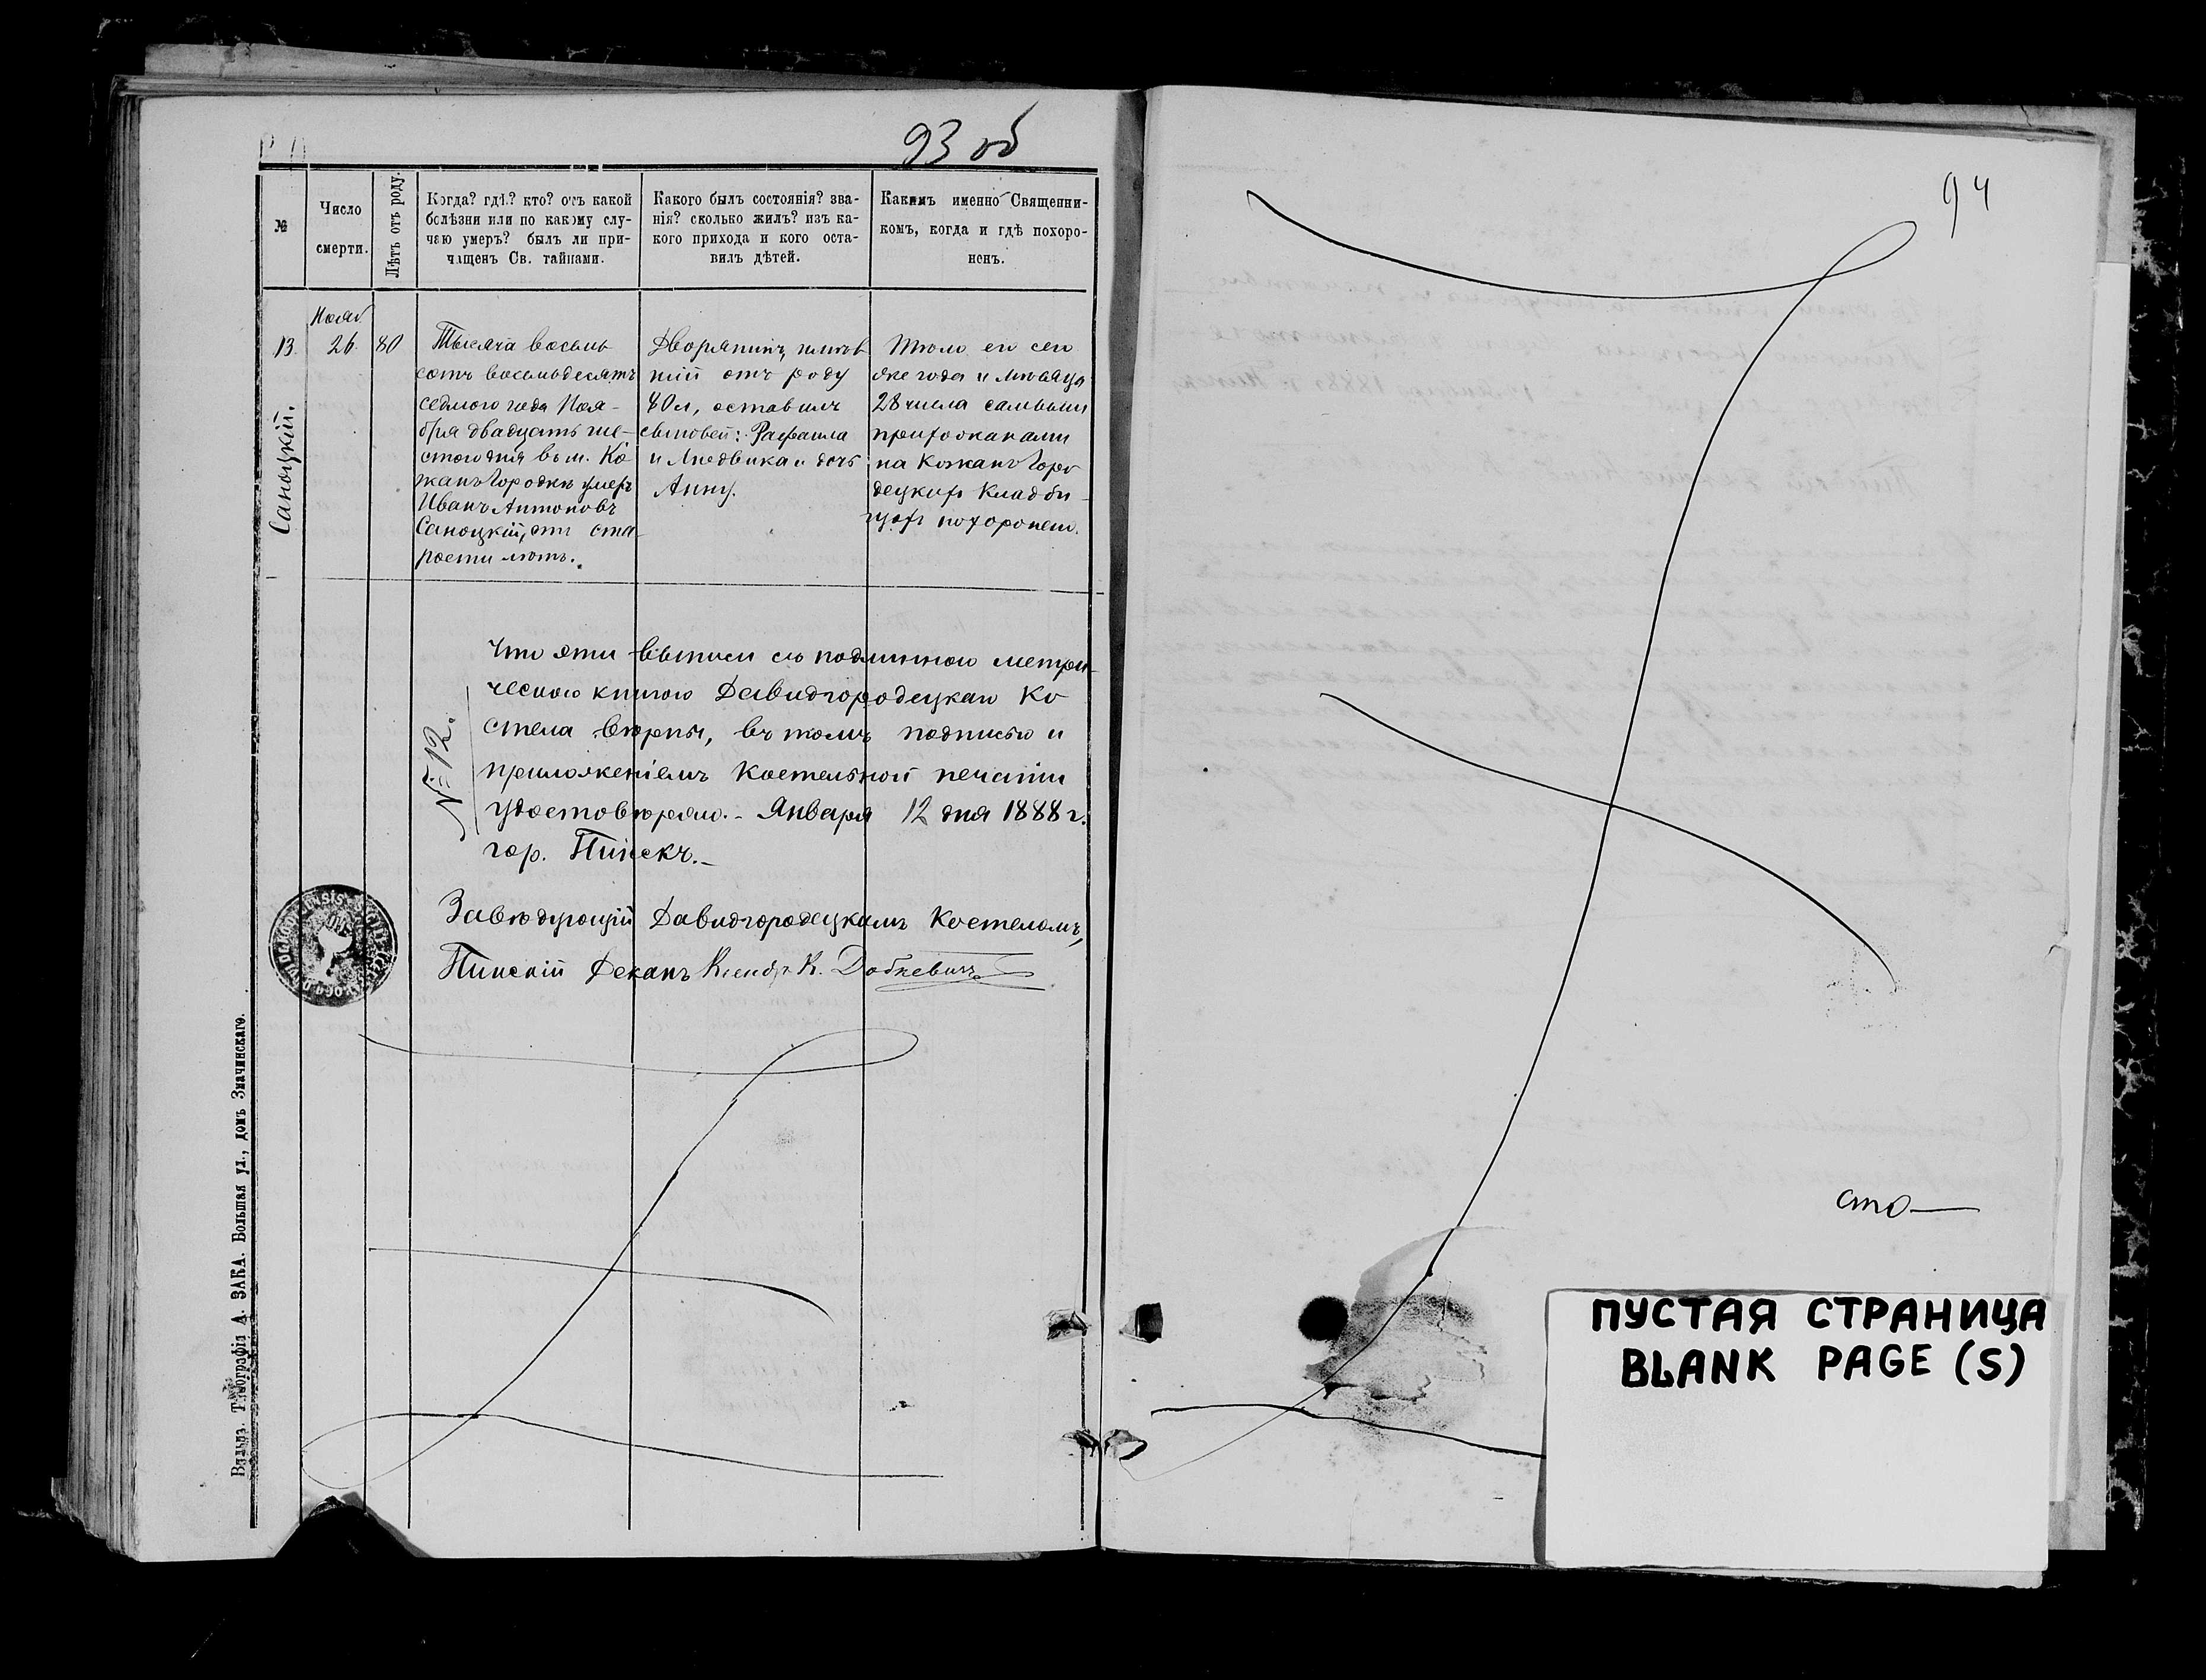 93 об
№
Число
смерти.
Лѣтъ отъ роду.
Когда? гдѣ? кто? отъ какой
болѣзни или по какому слу-
чаю умеръ? былъ ли при-
чащенъ Св. тайнами.
Какого былъ состоянія? зва-
нія? сколько жилъ? изъ ка-
кого прихода и кого оста-
вилъ дѣтей.
Какимъ именно Священни-
комъ, когда и гдѣ похоро-
ненъ.
Нояб.
13. 26. 80
Саноцкій.
Тысяча восемь
сотъ восемьдесятъ
седмого года Ноя-
бря двадцать ше-
стого дня въ м. Ко
жанъ Городкѣ умеръ
Иванъ Антоновъ
Саноцкій, отъ ста-
рости лѣтъ.
Дворянинъ, имѣв
шій отъ роду
80 л, оставилъ
сыновей: Рафаила
и Людвика и дочь
Анну.
Тѣло его сего
же года и мѣсяца
28 числа самыми
прихожанами
на Кожанъ Горо
децкомъ кладби-
щѣ похоронено.
№ 12.
Что эти выписи съ подлинною метри-
ческою книгою Давидгородецкаго Ко
стела вѣрны, въ томъ подписью и
приложеніемъ Костельной печати
удостовѣряю.- Января 12 дня 1888 г.
гор. Пинскъ.-
Завѣдующій Давидгородецкимъ Костеломъ,
Пинскій Деканъ Ксендзъ К. Добкевичъ
Вильна. Типографія А. ЗАКА. Большая ул., домъ Значинскаго.
94
сто—
ПУСТАЯ СТРАНИЦА
BLANK PAGE (S)